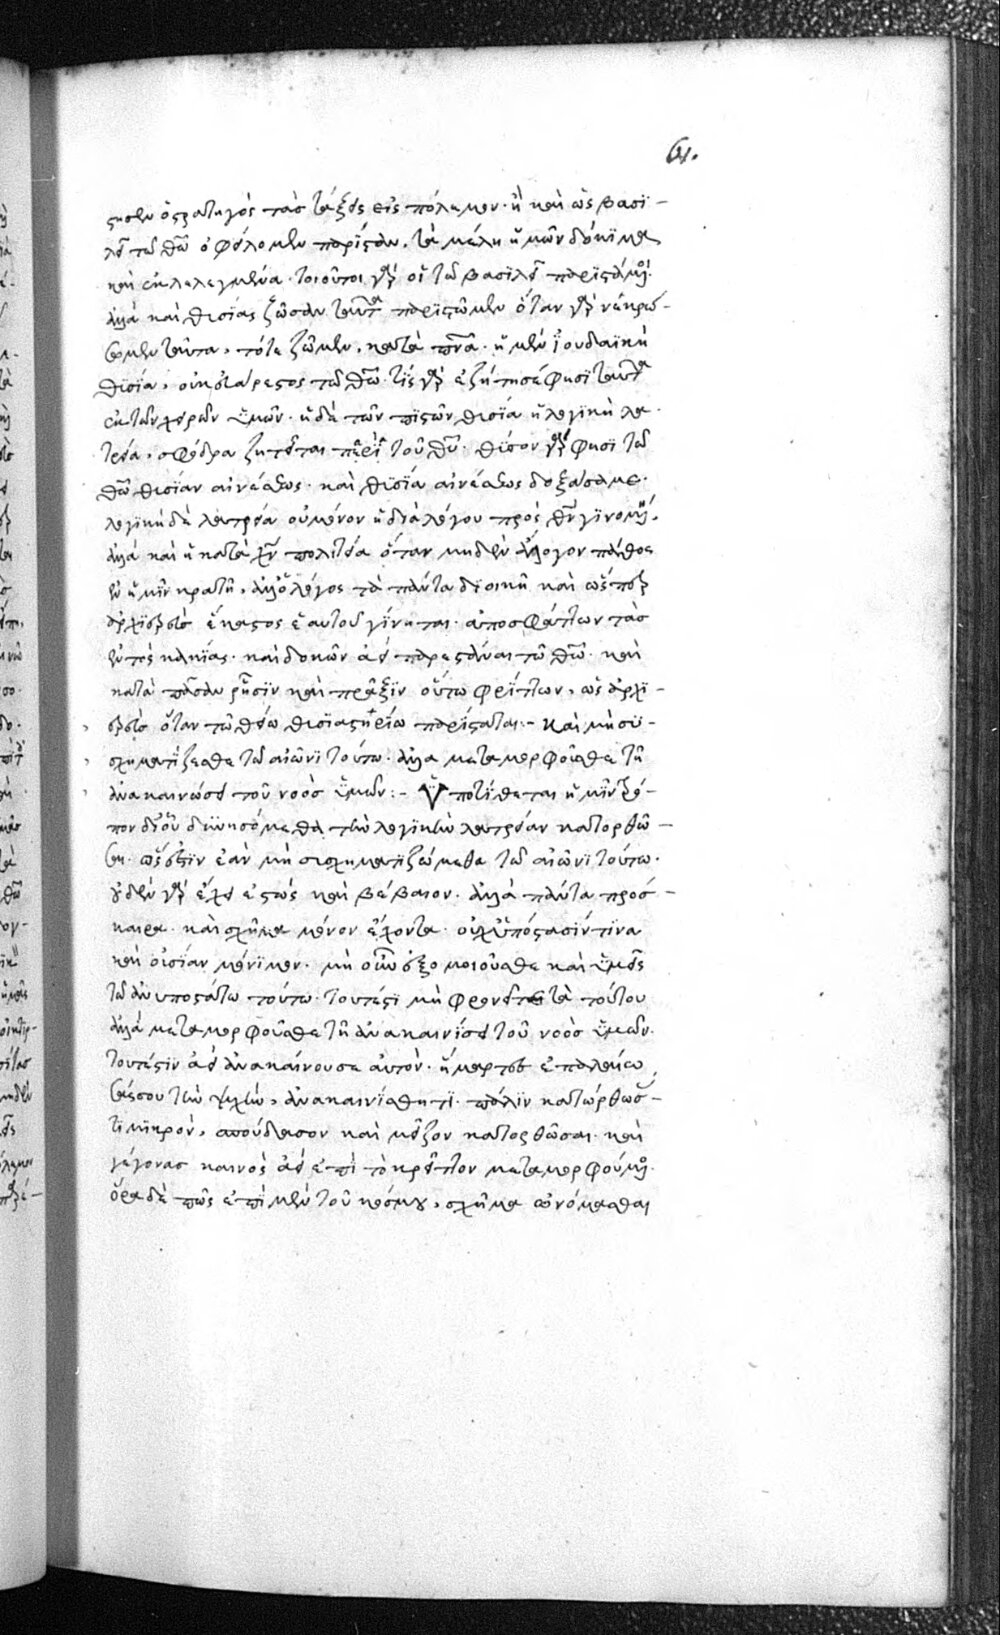 61.
στησιν ὁ στρατηγὸς τὰς τάξεις εἰς πόλεμον· ἢ καὶ ὡς βασι-
λεῖ τῶ θῶ ὀφείλομεν παριστᾶν, τὰ μέλη ἡμῶν δόκιμα
καὶ ἐκλελεγμένα· τοιοῦτοι γὰρ οἱ τῶ βασιλεῖ παριστάμενοι·
ἀλλὰ καὶ θυσίας ζῶσαν ταῦτα παριστῶμεν ὅταν γὰρ νεκρώ-
σωμεν ταῦτα, τότε ζῶμεν, κατὰ πνα· ἡ μὲν ἰουδαϊκὴ
θυσία, οὐκ εὐάρεστος τῶ θῶ· τίς γὰρ ἐζήτησέ φησι ταῦτα
ἐκ τῶν χειρῶν ὑμῶν· ἡ δὲ τῶν πιστῶν θυσία ἡ λογικὴ λα-
τρεία, σφόδρα ζητεῖται παρὰ τοῦ θυ· θῦσον γάρ φησι τῶ
θῶ θυσίαν αἰνέσεως· καὶ θυσία αἰνέσεως δοξάσει με·
λογικὴ δὲ λατρεία οὐ μόνον ἡ διὰ λόγου πρὸς θν γινομένη,
ἀλλὰ καὶ ἡ κατὰ χν πολιτεία ὅταν μηδὲν ἄλογον πάθος
ἐν ἡμῖν κρατῆ, ἀλλ' ὁ λόγος τὰ πάντα διοικῆ καὶ ὥσπερ
ἀρχιερεὺς ἕκαστος ἑαυτοῦ γίνηται· ἀποσφάττων τὰς
ἐντὸς κακίας· καὶ δοκῶν ἀεὶ παρεστάναι τῶ θῶ· καὶ
κατὰ πᾶσαν ῥῆσιν καὶ πρᾶξιν οὕτω φρίττων, ὡς ἀρχι-
ερεὺς ὅταν τῶ θείω θυσιαστηρίω παρίσταται:- Καὶ μὴ συ-
σχηματίζεσθε τῶ αἰῶνι τούτω· ἀλλὰ μεταμορφοῦσθε τῆ
ἀνακαινώσει τοῦ νοὸς ὑμῶν:- Ὑποτίθεται ἡμῖν τρό-
πον δι' οὗ δυνησόμεθα τὴν λογικὴν λατρείαν κατορθῶ-
σαι· ὥς ἐστιν ἐὰν μὴ συσχηματιζώμεθα τῶ αἰῶνι τούτω·
οὐδὲν γὰρ ἔχει ἑστὼς καὶ βέβαιον· ἀλλὰ πάντα πρόσ-
καιρα· καὶ σχῆμα μόνον ἔχοντα· οὐχ ὑπόστασίν τινα
καὶ οὐσίαν μόνιμον· μὴ οὖν ἐξομοιοῦσθε καὶ ὑμεῖς
τῶ ἀνυποστάτω τούτω· τουτέστι μὴ φρονεῖτε τὰ τούτου
ἀλλὰ μεταμορφοῦσθε τῆ ἀνακαινίσει τοῦ νοὸς ὑμῶν·
τουτέστιν ἀεὶ ἀνακαινοῦσθε αὐτόν· ἥμαρτες ἐπαλαίω
σας σου τὴν ψυχὴν, ἀνακαινίσθητι· πάλιν κατώρθωσάς
τι μικρὸν, σπούδασον καὶ μεῖζον κατορθῶσαι· καὶ
γέγονας καινὸς ἀεὶ ἐπὶ τὸ κρεῖττον μεταμορφούμενος·
ὅρα δὲ πῶς ἐπὶ μὲν τοῦ κόσμου, σχῆμα ὠνόμασθαι